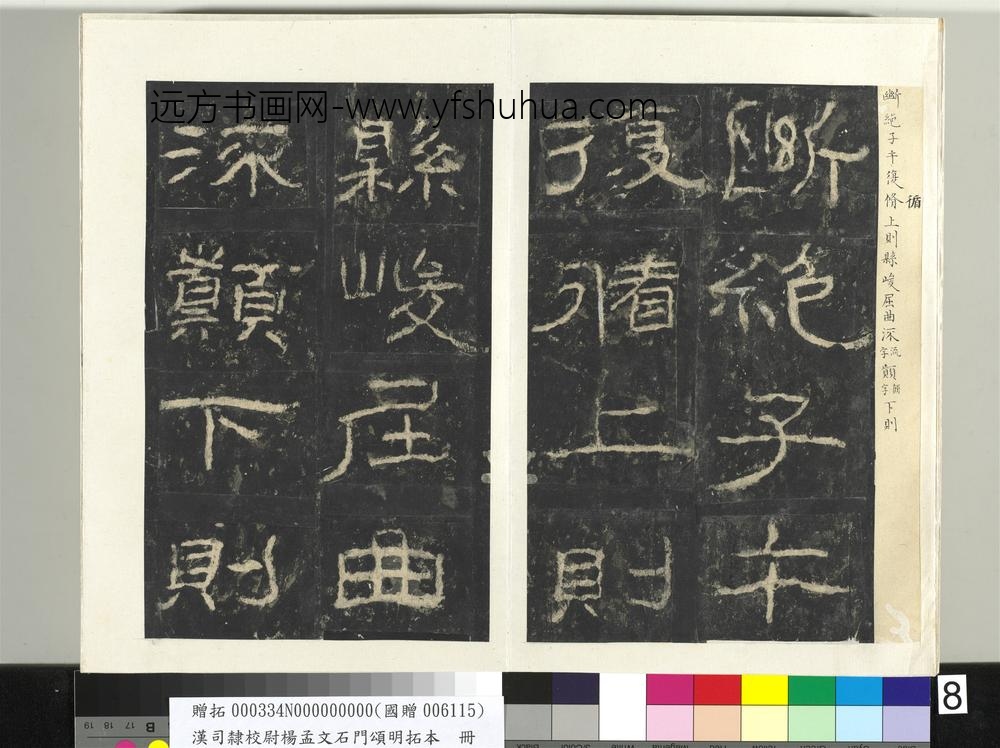 远方书画网-www.yfshuhua.com
斷絕子午
復循上則
縣峻屈曲
流顛下則
斷絕子午復脩上則縣峻屈曲流字顛字下則
循
8
贈拓 000334N000000000(國贈 006115)
漢司隸校尉楊孟文石門頌明拓本 冊
19 18 17 B